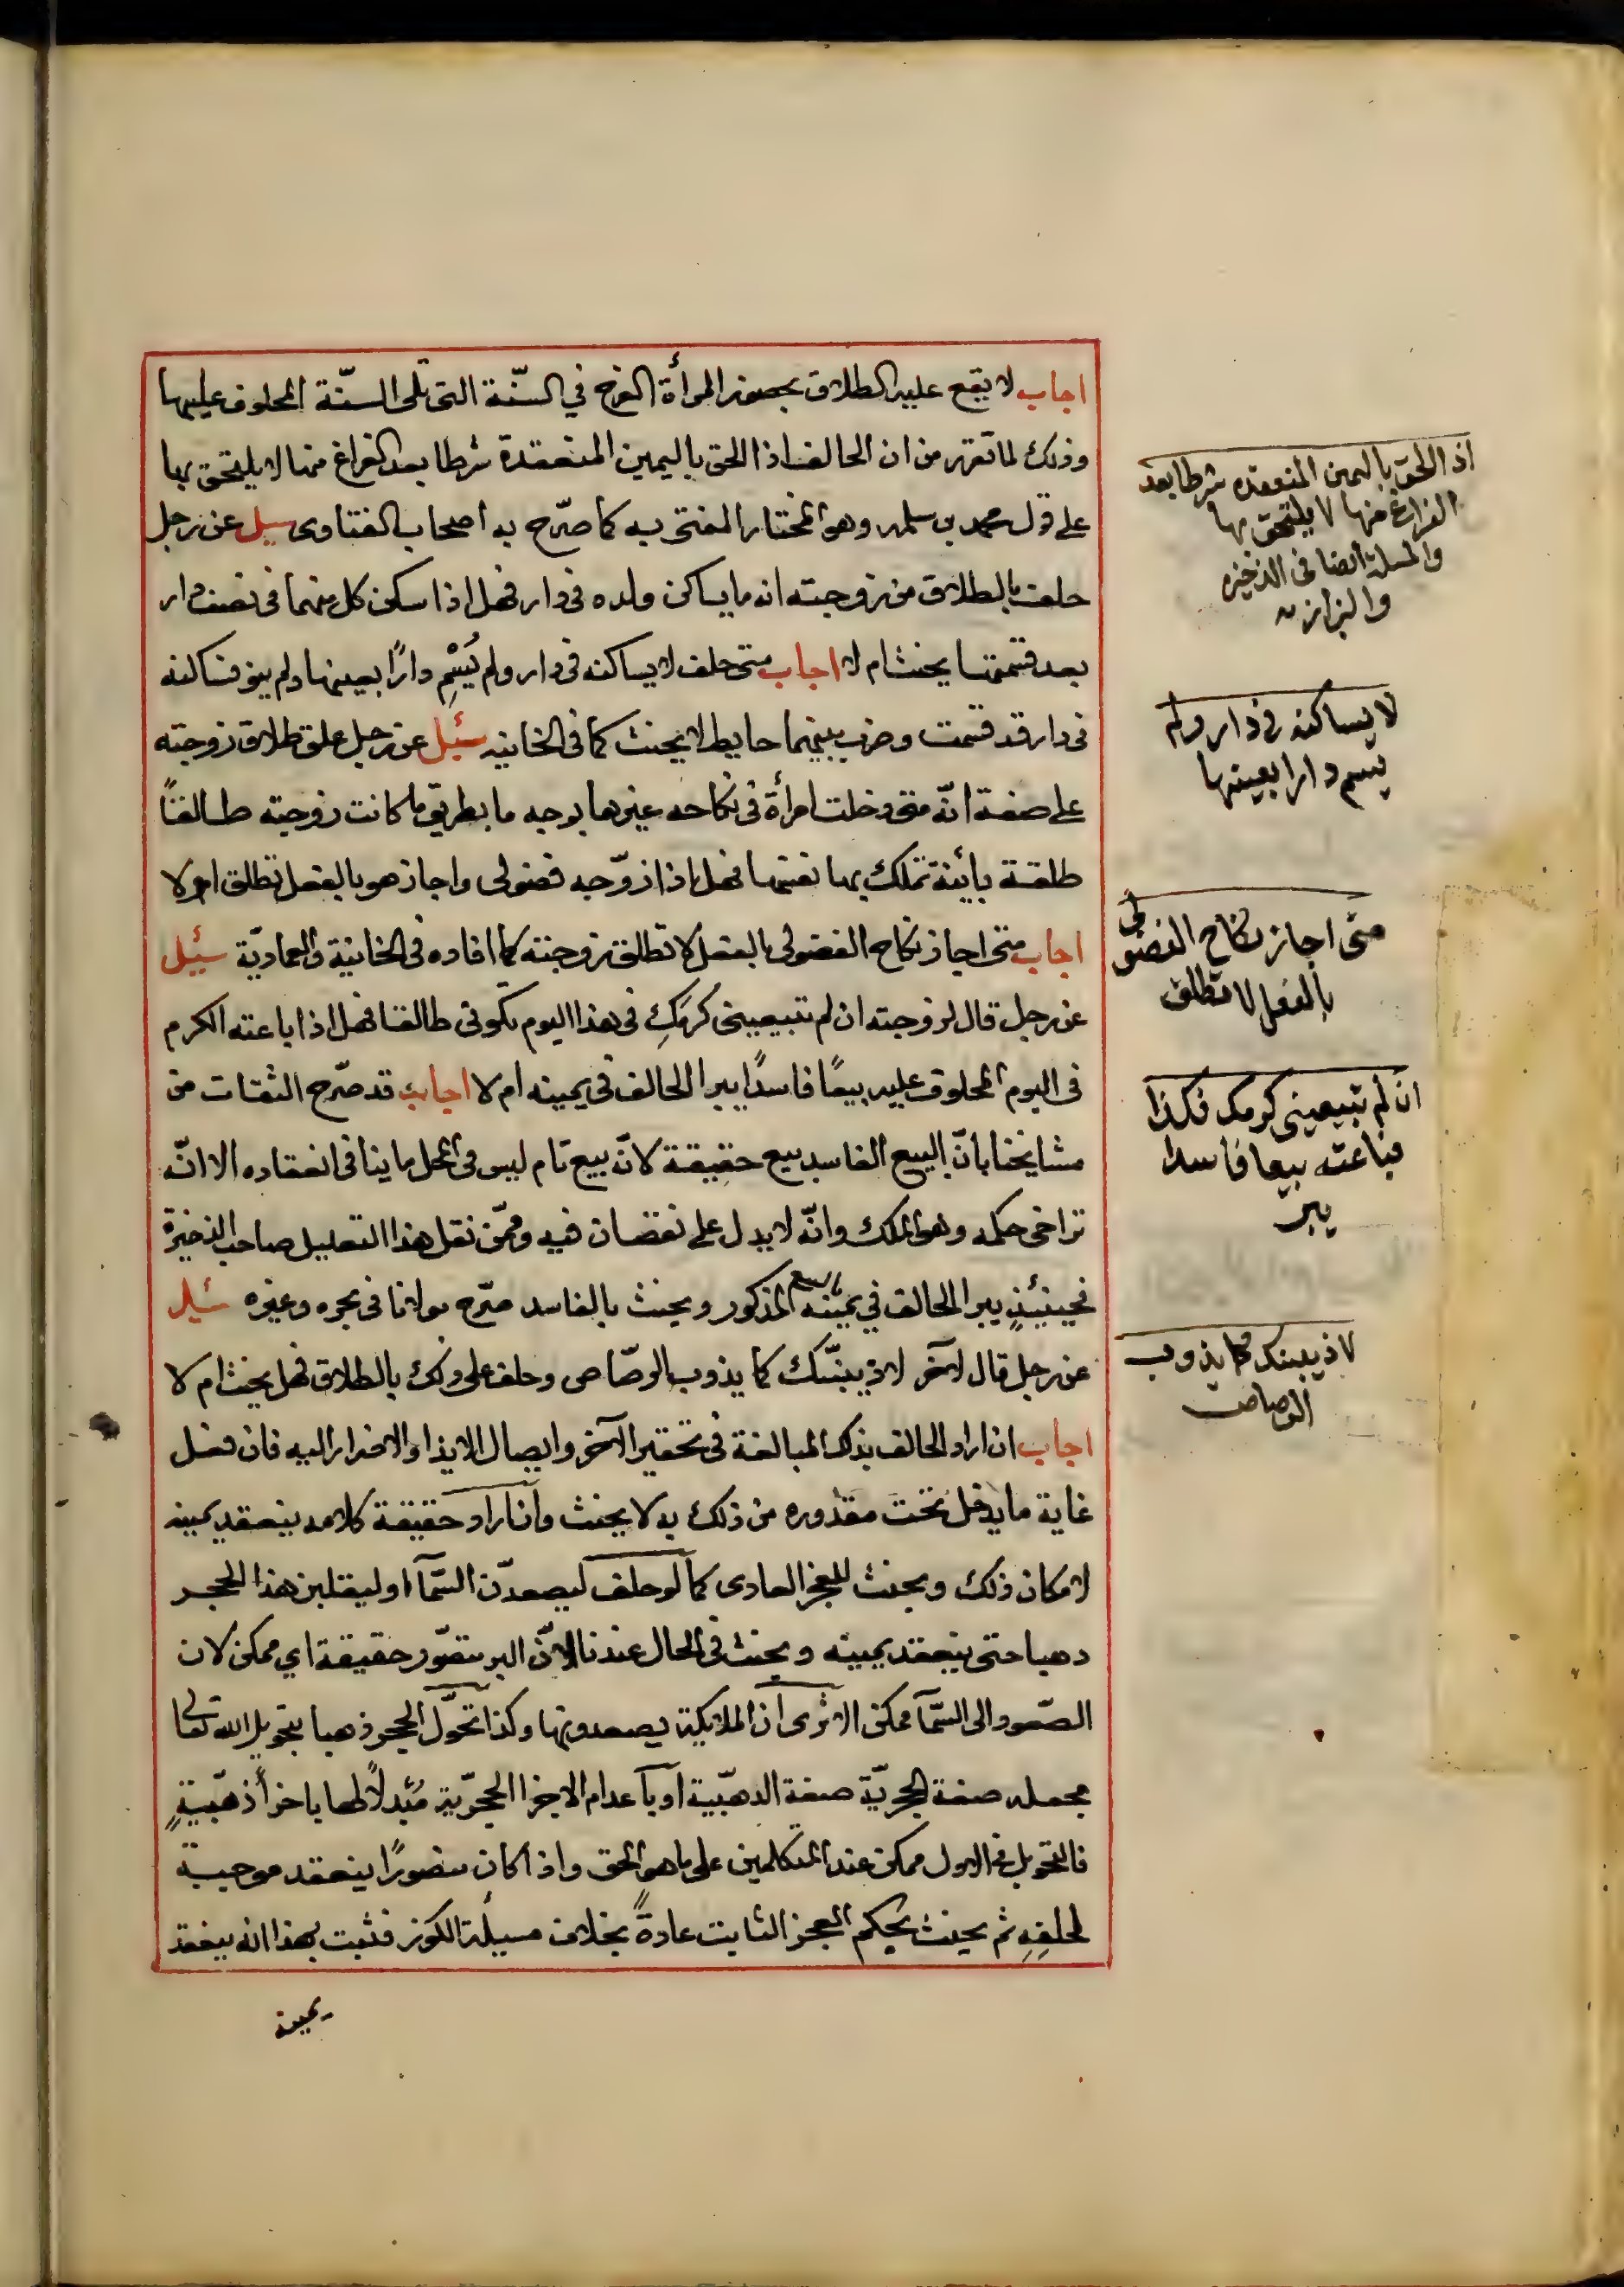 اجاب لا يقع عليه الطلاق بحضور المرأة الفرح في السنة التي تلى السنة المحلوف عليها
وذلك لما تقرر من ان الحالف اذا الحق باليمين المنعقدة شرطا بعد الفراغ منها لا يلتحق بها
على قول محمد بن سلمه وهو المختار المفتى به كما صرّح به اصحاب الفتاوى سيل عن رجل
حلف بالطلاق من زوجته انه ما يساكن ولده في دار فهل اذا سكن كل منهما في نصف دار
بعد قسمتها يحنث ام لا اجاب متى حلف لا يساكنه في دار ولم يُسَمِّ دارًا بعينها ولم ينو فساكنه
في دار قد قسمت وضرب بينهما حايط لا يحنث كما في الخانيه سئيل عن رجل علق طلاق زوجته
على صفة انّه متى دخلت امرأة في نكاحه غيرها بوجه ما بطريق ما كانت زوجته طالقًا
طلقة بائنة تملك بها نفسها فهل اذا زوّجه فضولى واجاز هو بالفعل تطلق ام لا
اجاب متى اجاز نكاح الفضولى بالفعل لا تطلق زوجته كما افاده في الخانية والعماديّة سئيل
عن رجل قال لزوجته ان لم تبيعيني كرمكِ في هذا اليوم تكوني طالقا فهل اذا باعته الكرم
في اليوم المحلوف عليه بيعًا فاسدًا يبرا الحالف في يمينه ام لا اجاب قد صرّح الثقات من
مشايخنا بانّ البيع الفاسد بيع حقيقة لانّه بيع تام ليس في المحل ما ينافي انعقاده الا انّه
تراخى حكمه وهو الملك وانّه لا يدل على نقصان فيه وممّن نقل هذا التعليل صاحب الذخيرة
فحينئذٍ يبرا الحالف في يمينه المذكور ويحنث بالفاسد صرّح مولانا في بحره وغيره سئيل
عن رجل قال لآخر لاذيبنّك كما يذوب الرصّاص وحلف على ذلك بالطلاق فهل يحنث ام لا
اجاب ان اراد الحالف بذلك المبالغة في تحقير الآخر وايصال الايذا والاضرار اليه فان فعل
غاية ما يدخل تحت مقدوره من ذلك به لا يحنث وان اراد حقيقة كلامه ينعقد يمينه
لامكان ذلك ويحنث للعجز العادى كما لو حلف ليصعدّن السّمآ او ليقلبن هذا الحجر
دهبا حتى ينعقد يمينه ويحنث في الحال عندنا لانّ البر متصّور حقيقة اي ممكن لان
الصّعود الى السّمآ ممكن الا ترى ان الملايكة يصعدونها وكذا تحوّل الحجر ذهبا بتحويل الله تعالى
بجعله صفة الحجريّة صفة الذهبّية او بآعدام الاجزا الحجرّية مُبْدلاً لها باجزأ ذهبّيةٍ
فالتحويل في الاول ممكن عند المتكلمين على ما هو الحق واذا كان متصورًا ينعقد موجبة
لحلفِهِ ثم يحنث بحكم العجز الثابت عادةً بخلاف مسيلة الكوز فثبت بهذا انه ينعقد
يمينه
اذا الحق باليمين المنعقده شرطا بعد
الفراغ منها لا يلتحق بها
والمسلة ايضا في الذخيره
والبزازيه
لا يساكنه في دار ولم
يسم دارا بعينها
متى اجاز نكاح الفضولى
بالفعل لا تطلق
ان لم تبيعيني كرمك فكذا
فباعته بيعا فاسدا
يبر
لاذيبنك كما يذوب
الرصاص